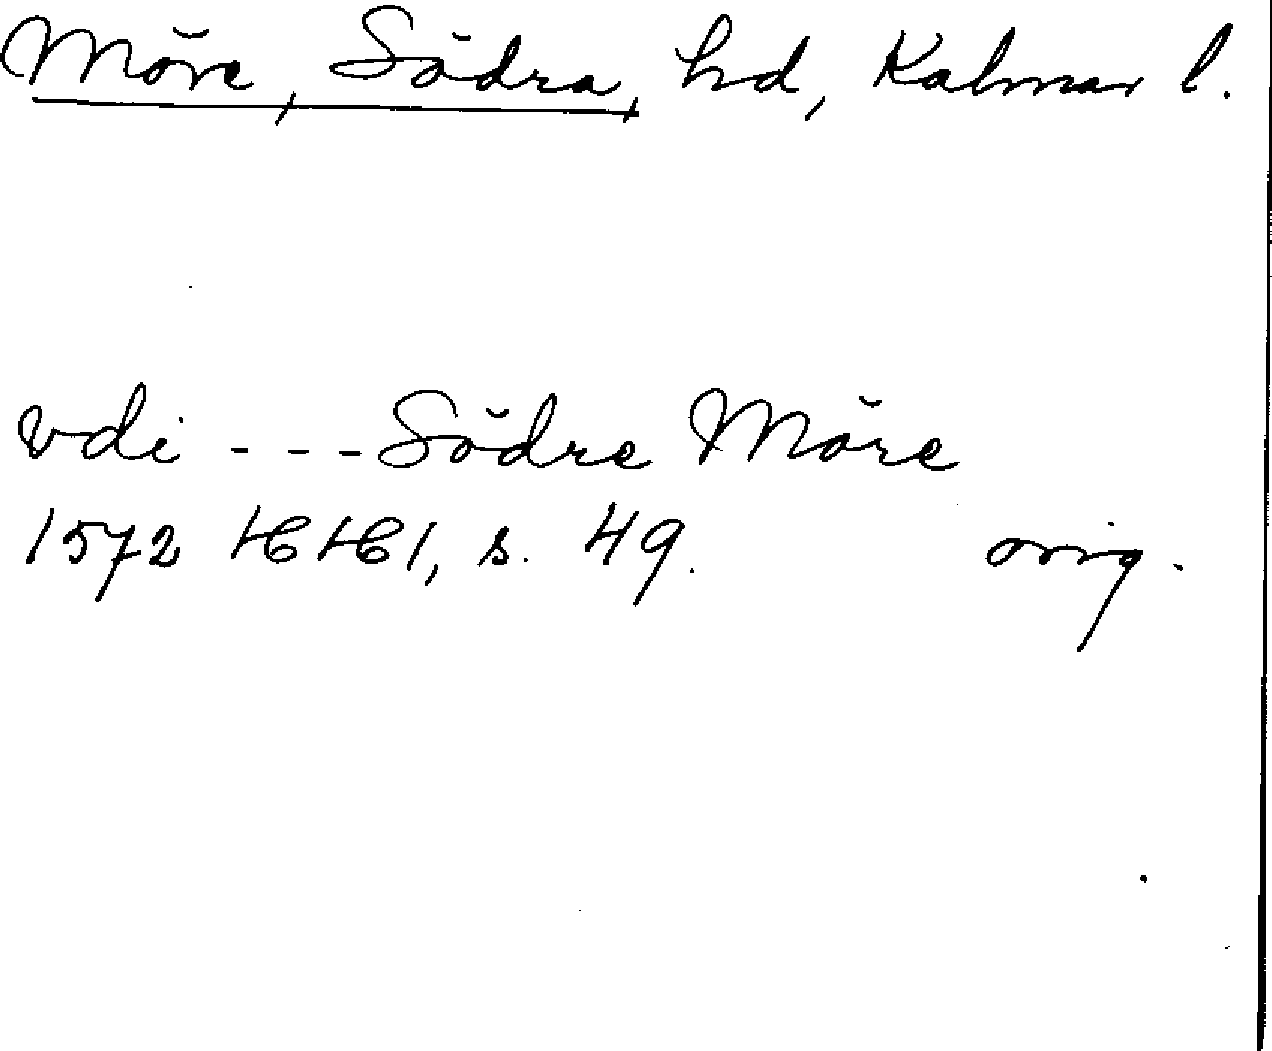 Möre, Södra, hd, Kalmar l.
vdi - - - Södre Möre
1572 HH1, s. 49. orig.